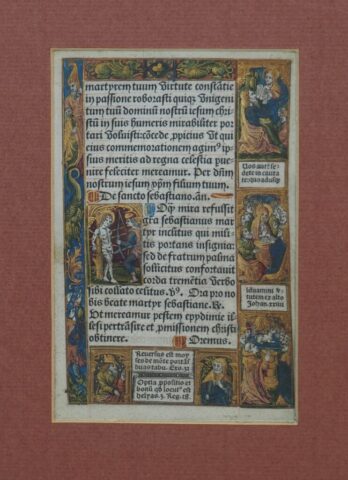 martyrem tuum Virtute constātie
in passione roborasti quiqz Unigeni
tum tuū dominū nostrū iesum chri-
stū in suis humeris mirabiliter por
tari Voluisti: cōcede ꝓpicius Ut qui
eius commemorationem agimꝰ ip̄
sius meritis ad regna celestia pue-
nire feliciter mereamur. Per dn̄m
nostrum iesum xp̄m filium tuum.
De sancto sebastiano. an̄.
O Qz mira refulsit
gra sebastianus mar
tyr inclitus qui mili-
tis portans insignia:
sed de fratrum palma
sollicitus confortauit
corda tremētia Verbo
sibi collato celitus. Vꝰ. Ora pro no
bis beate martyr sebastiane. R.
Ut mereamur pestem epydimie il-
lesi ptrāsire et ꝓmissionem christi
obtinere. Oremus.
Uos aut̄ se-
dete in ciuita
te: quo adusqz
iduamini ϛ-
tutem ex alto
Johan. xxiiii
Reuersus est moy
ses de mōte portās
duas tabu. Exo. 32
Optīa ppositio et
bonū qd locutꝰ est
helyas. 3. Reg. 18.